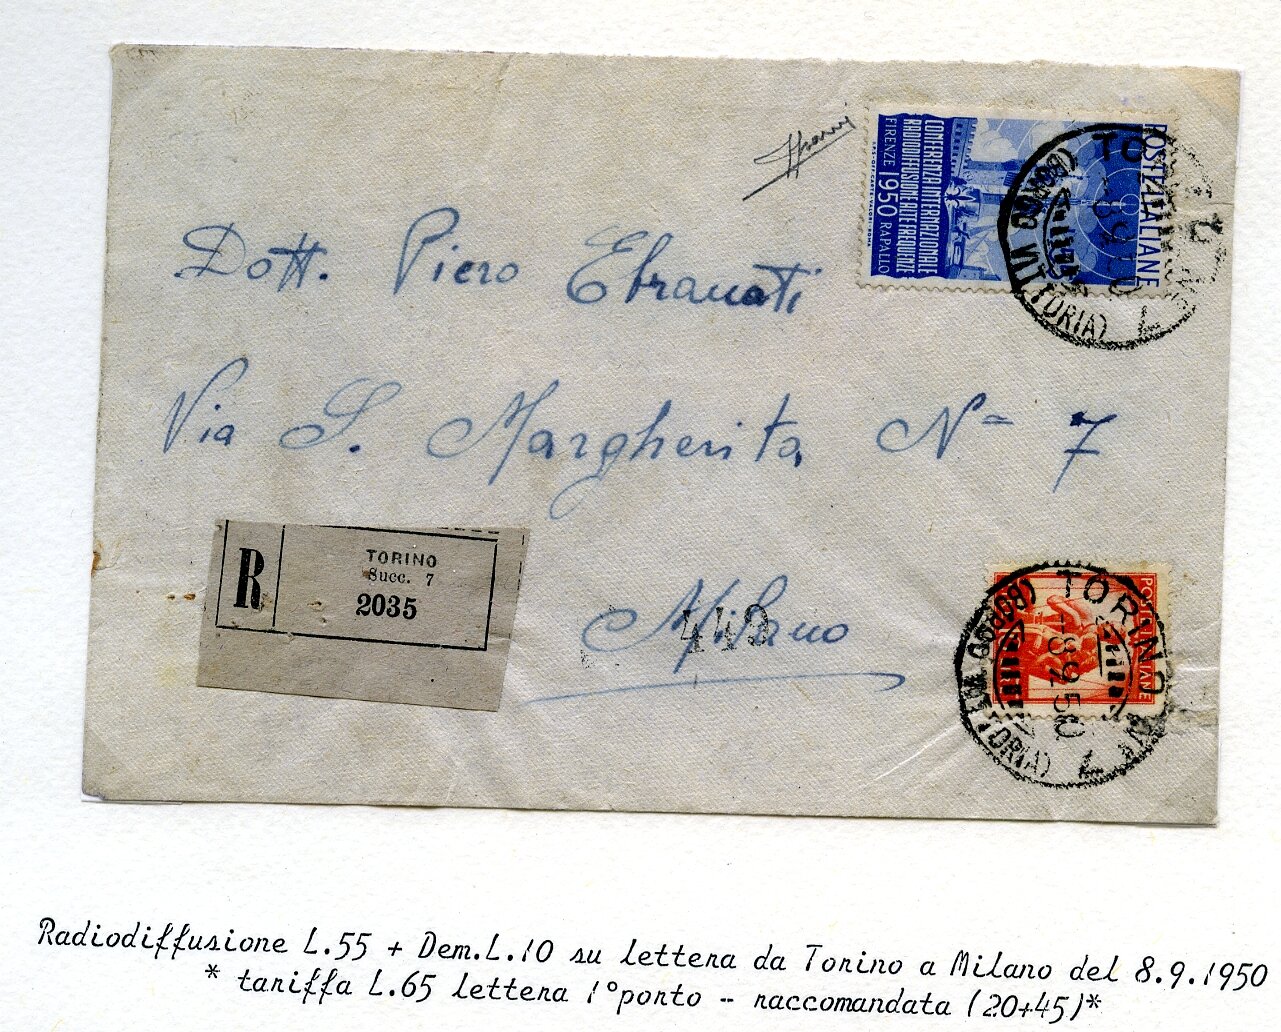 POSTE ITALIANE
CONFERENZA INTERNAZIONALE
RADIODIFFUSIONE ALTE FREQUENZE
FIRENZE 1950 RAPALLO
TORINO
(BORGO VITTORIA)
7
Dott. Piero Ebranati
Via S. Margherita Nº 7
Milano
449
R
TORINO
Succ. 7
2035
TORINO
(BORGO VITTORIA)
7
8.9.50
Radiodiffusione L.55 + Dem.L.10 su lettera da Torino a Milano del 8.9.1950
* tariffa L.65 lettera 1°porto - raccomandata (20+45)*